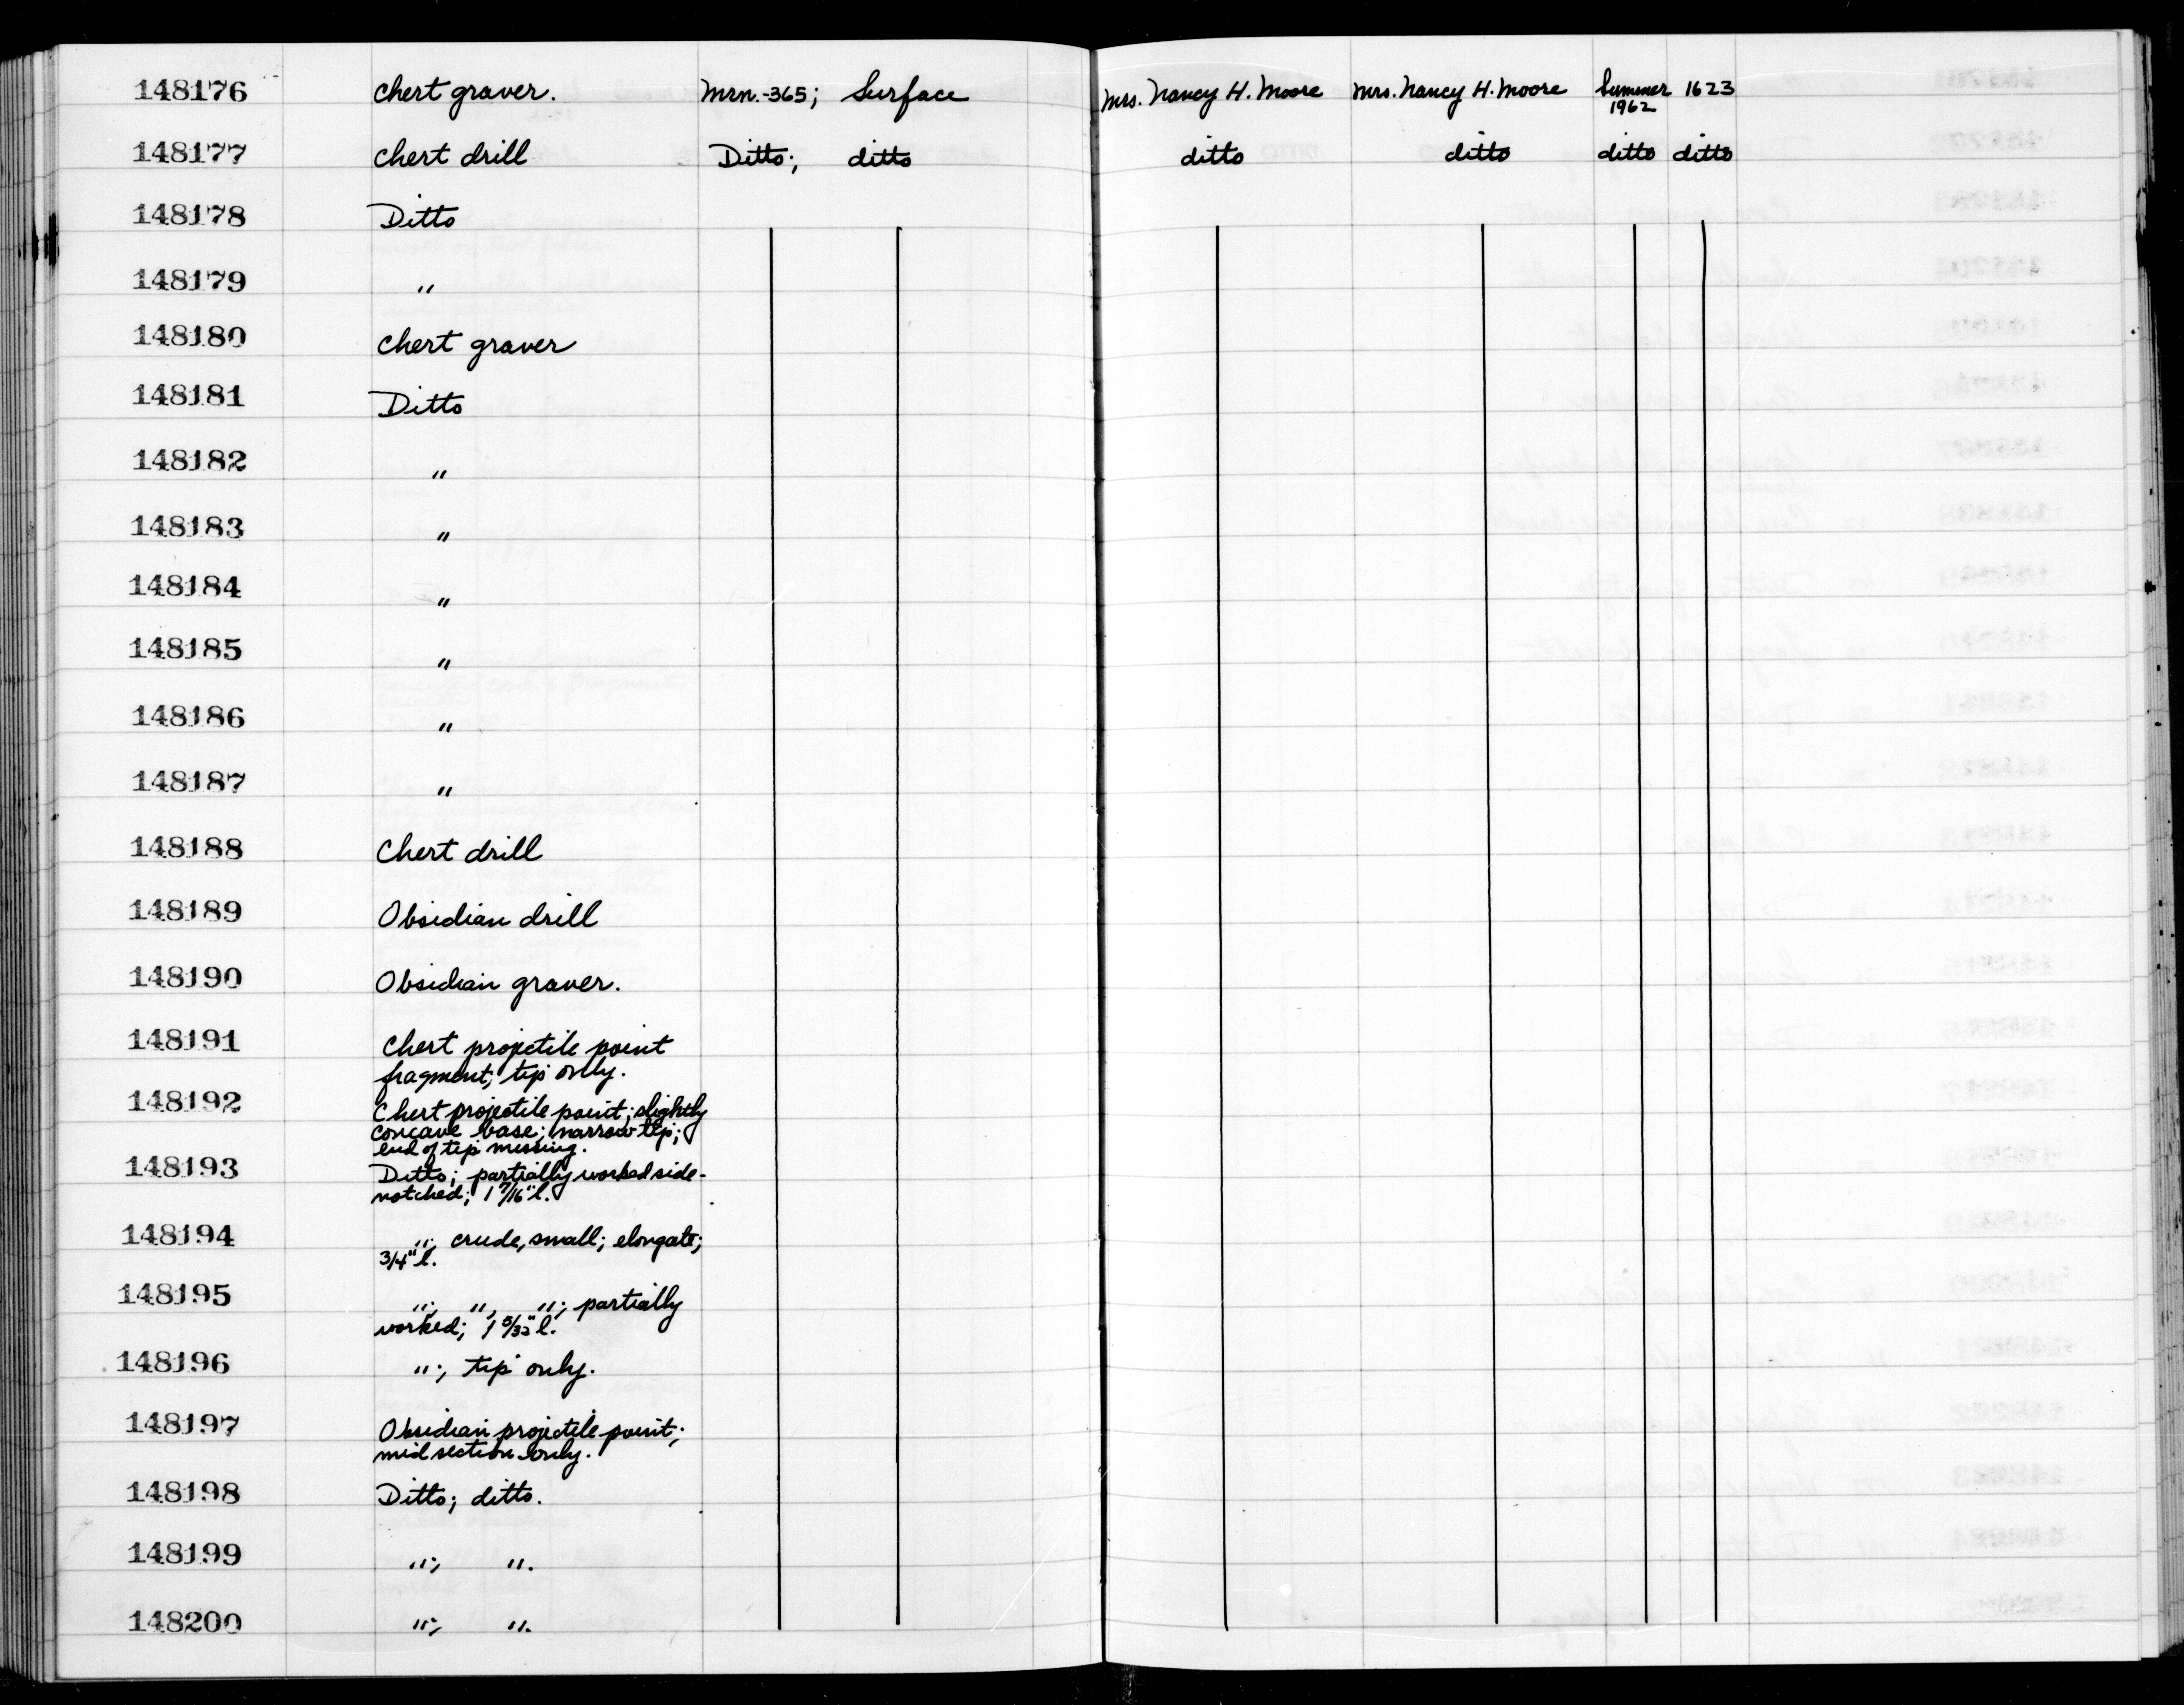 148176 Chert graver. Mrn.-365; Surface Mrs. Nancy H. Moore Mrs. Nancy H. Moore Summer 1623
1962
148177 Chert drill Ditto; ditto ditto ditto ditto ditto
148178 Ditto
148179 "
148180 Chert graver
148181 Ditto
148182 "
148183 "
148184 "
148185 "
148186 "
148187 "
148188 Chert drill
148189 Obsidian drill
148190 Obsidian graver.
148191 Chert projectile point
fragment; tip only.
148192 Chert projectile point; slightly
concave base; narrow tip;
end of tip missing.
148193 Ditto; partially worked side-
notched; 1 7/16" l.
148194 "; crude, small; elongate;
3/4" l.
148195 "; ", "; partially
worked; 1 5/32" l.
148196 "; tip only.
148197 Obsidian projectile point;
mid section only.
148198 Ditto; ditto.
148199 "; ".
148200 "; ".